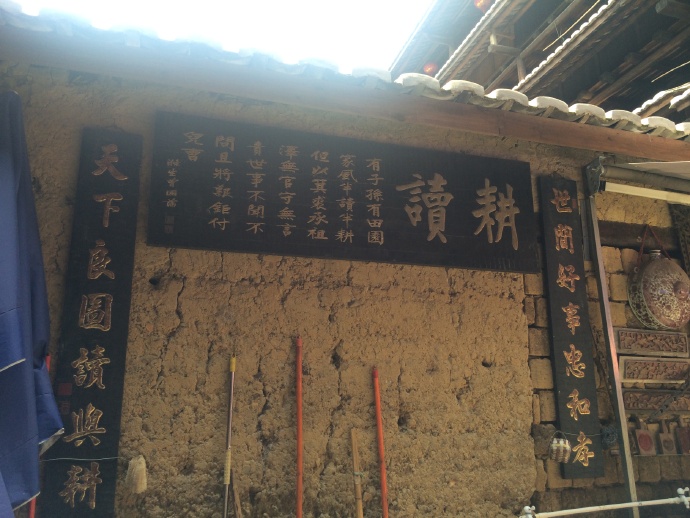 世間好事忠和孝
耕讀
有子孫有田園
家風半讀半耕
但以箕裘承祖
澤無官守無言
責世事不聞不
問且將艱鉅付
兒曹
滌生曾國藩
天下良圖讀與耕